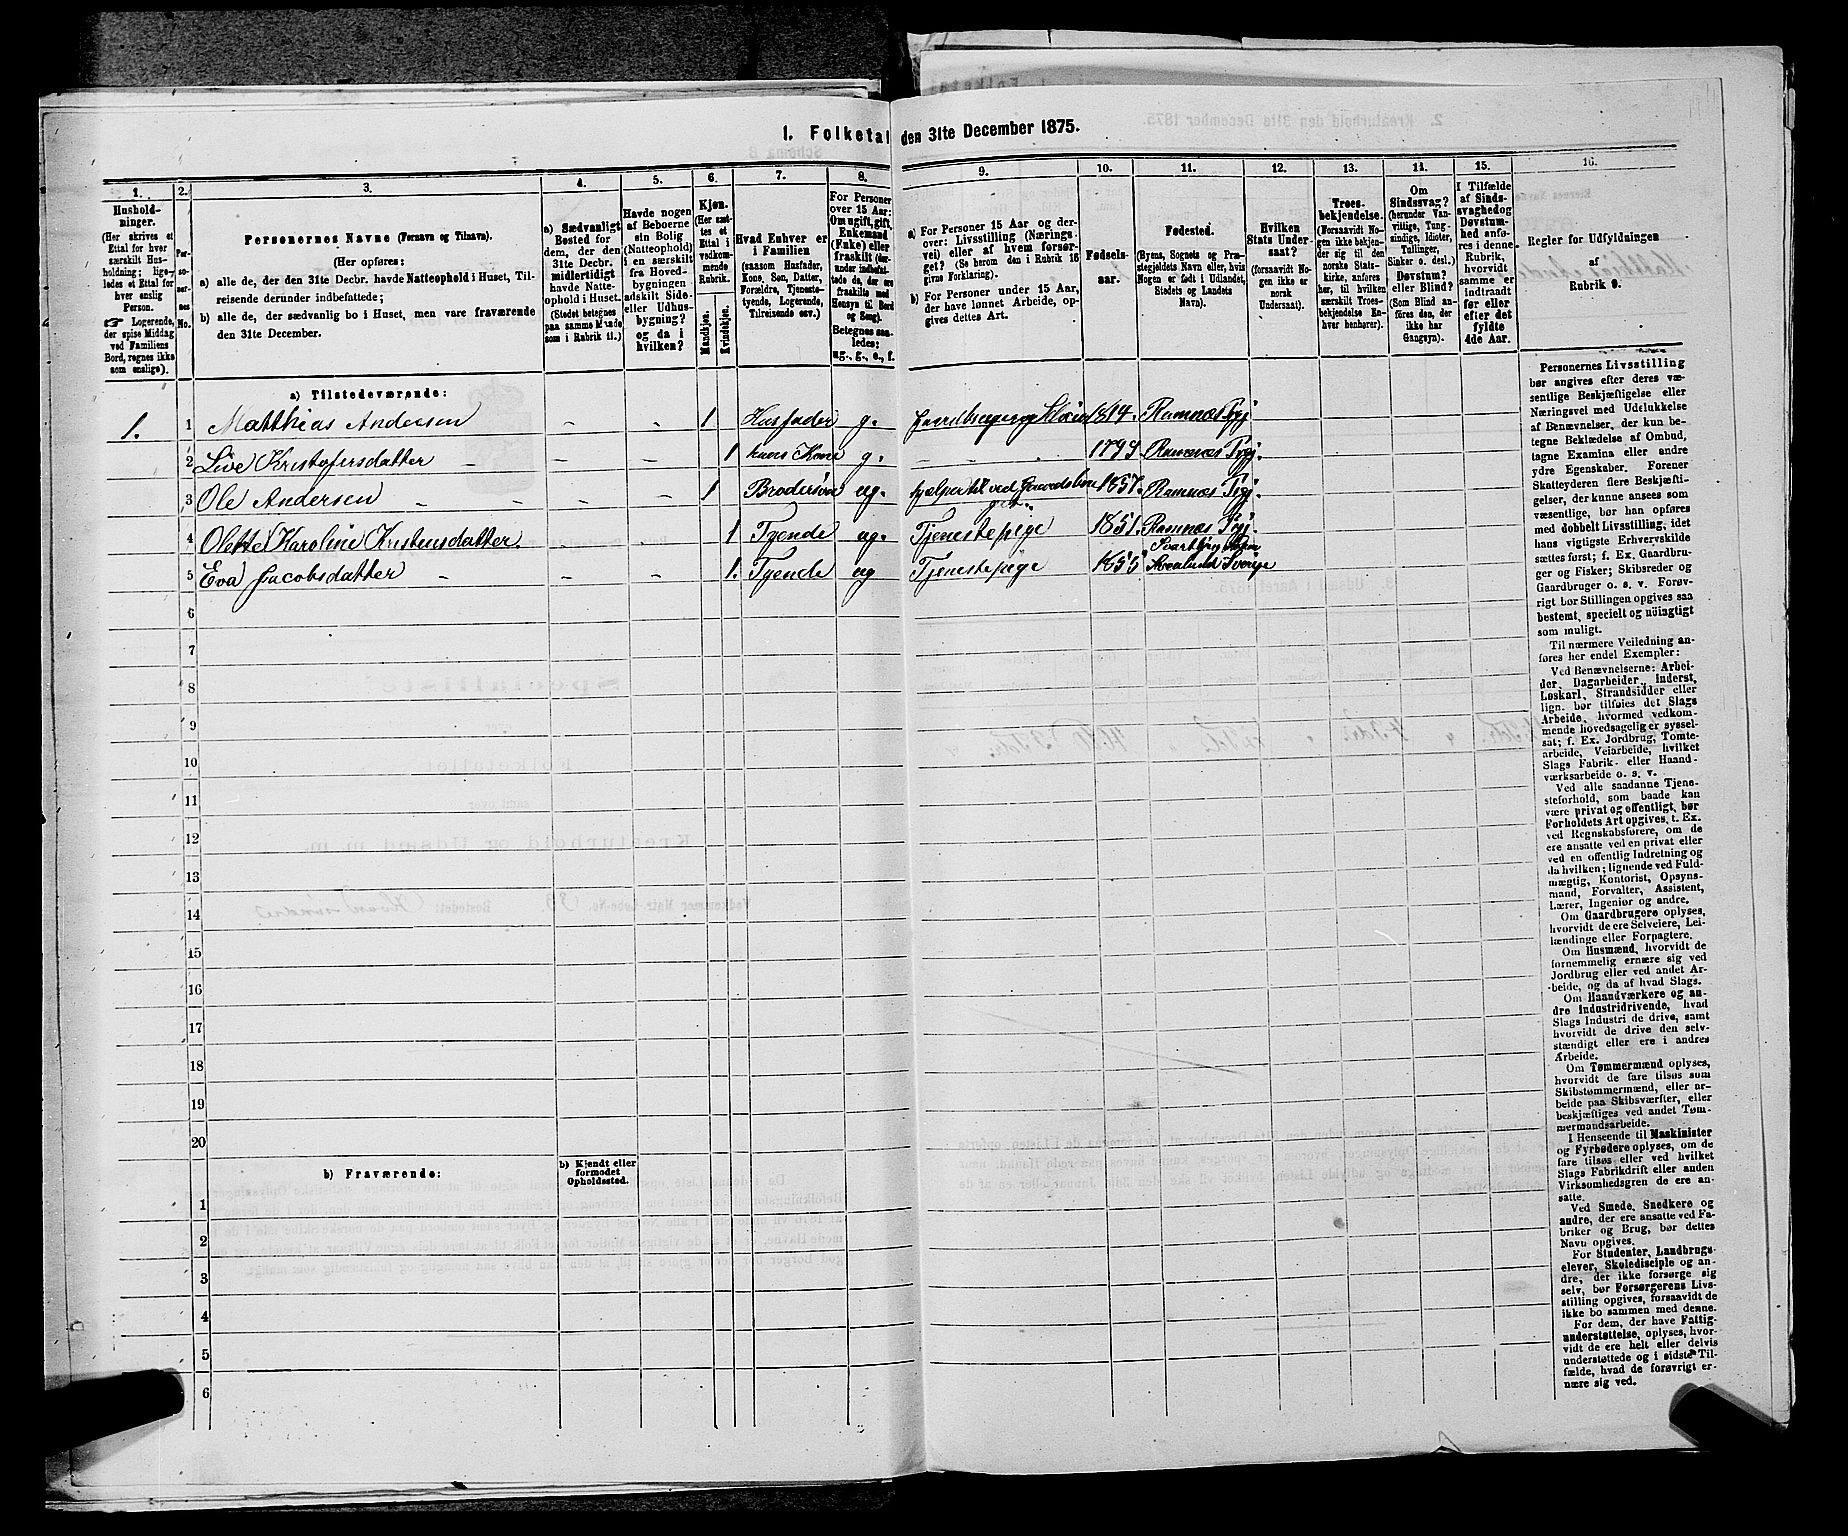 1. Folketal den 31te December 1875.
1.
Hushold-
ninger.
(Her skrives et
Ettal for hver
særskilt Hus-
holdning; lige-
ledes et Ettal for
hver enslig
Person.
☞ Logerende,
der spise Middag
ved Familiens
Bord, regnes ikke
som enslige).
2.
Per-
so-
ner-
nes
No.
3.
Personernes Navne (Fornavn og Tilnavn).
(Her opføres:
a) alle de, der den 31te Decbr. havde Natteophold i Huset, Til-
reisende derunder indbefattede;
b) alle de, der sædvanlig bo i Huset, men vare fraværende
den 31te December.
4.
a) Sædvanligt
Bosted for
dem, der den
31te Decbr.
midlertidigt
havde Natte-
ophold i Huset.
(Stedet betegnes
paa samme Maade
som i Rubrik 11.)
5.
Havde nogen
af Beboerne
sin Bolig
(Natteophold)
i en særskilt
fra Hoved-
bygningen
adskilt Side-
eller Udhus-
bygning?
og da i
hvilken?
6.
Kjøn.
(Her sæt-
tes et
Ettal i
vedkom-
mende
Rubrik.
Mandkjøn.
Kvindekjøn.
7.
Hvad Enhver er
i Familien
(saasom Husfader,
Kone, Søn, Datter,
Forældre, Tjeneste-
tyende, Logerende,
Tilreisende osv.)
8.
For Personer
over 15 Aar:
Om ugift, gift,
Enkemand
(Enke) eller
fraskilt (der-
under indbefat-
tede de, der ere
fraskilte med
Hensyn til Bord
og Seng).
Betegnes saa-
ledes:
ug., g., e., f.
9.
a) For Personer 15 Aar og der-
over: Livsstilling (Nærings-
vei) eller af hvem forsør-
get? (Se herom den i Rubrik 16
givne Forklaring).
b) For Personer under 15 Aar,
der have lønnet Arbeide, op-
gives dettes Art.
10.
Fødsels-
aar.
11.
Fødested.
(Byens, Sognets og Præ-
stegjeldets Navn eller, hvis
Nogen er født i Udlandet,
Stedets og Landets
Navn).
12.
Hvilken
Stats Under-
saat?
(forsaavidt No-
gen ikke er
norsk
Undersaat).
13.
Troes-
bekjendelse.
(Forsaavidt No-
gen ikke bekjen-
der sig til den
norske Stats-
kirke, anføres
her, til hvilken
særskilt Troes-
bekjendelse En-
hver henhører).
14.
Om
Sindssvag?
(herunder Van-
vittige, Tung-
sindige, Idioter,
Tullinger,
Sinker o. desl.)
Døvstum?
eller Blind?
(Som Blind an-
føres den, der
ikke har
Gangsyn).
15.
I Tilfælde
af Sinds-
svaghed og
Døvstum-
hed anfø-
res i denne
Rubrik,
hvorvidt
samme er
indtraadt
før eller
efter det
fyldte
4de Aar.
16.
Regler for Udfyldningen
af
Rubrik 9.
a) Tilstedeværende:
1. 1 Matthias Andersen - - 1 Husfader g. Gaardbruger og 1814. Ramnæs Prgj
2 Live Kristofersdatter - - - 1 hans Kone g. - - 1794 Ramnæs Prgj.
3 Ole Andersen - - - 1 Brodersøn ug. hjælper til ved Gaardsbru 1857. Ramnæs Prgj.
get.
4 Olette Karoline Kristensdatter. - - 1 Tyende ug. Tjenestepige 1851. Ramnæs Prgj.
5 Eva Jacobsdatter - - - 1. Tyende ug Tjenestepige 1855 Sverige
6
7
8
9
10
11
12
13
14
15
16
17
18
19
20
b) Fraværende:
b) Kjendt eller
formodet
Opholdssted.
1
2
3
4
5
6
Personernes Livsstilling
bør angives efter deres væ-
sentlige Beskjæftigelse eller
Næringsvei med Udelukkelse
af Benævnelser, der kun be-
tegne Beklædelse af Ombud,
tagne Examina eller andre
ydre Egenskaber. Forener
Skatteyderen flere Beskjæfti-
gelser, der kunne ansees som
væsentlige, bør han opføres
med dobbelt Livsstilling, idet
hans vigtigste Erhvervskilde
sættes først; f. Ex. Gaardbru-
ger og Fisker; Skibsreder og
Gaardbruger o. s. v. Forøv-
rigt bør Stillingen opgives saa
bestemt, specielt og nøiagtigt
som muligt.
Til nærmere Veiledning an-
føres her endel Exempler:
Ved Benævnelserne: Arbei-
der, Dagarbeider, Inderst,
Løskarl, Strandsidder eller
lign. bør tilføies det Slags
Arbeide, hvormed vedkom-
mende hovedsagelig er syssel-
sat; f. Ex. Jordbrug, Tomte-
arbeide, Veiarbeide, hvilket
Slags Fabrik- eller Haand-
værksarbeide o. s. v.
Ved alle saadanne Tjene-
steforhold, som baade kan
være privat og offentligt, bør
Forholdets Art opgives, t. Ex.
ved Regnskabsførere, om de
ere ansatte ved en privat eller
ved en offentlig Indretning og
da hvilken; lignende ved Fuld-
mægtig, Kontorist, Opsyns-
mand, Forvalter, Assistent,
Lærer, Ingeniør og andre.
Om Gaardbrugere oplyses,
hvorvidt de ere Selveiere, Lei-
lændinge eller Forpagtere.
Om Husmænd, hvorvidt de
fornemmelig ernære sig ved
Jordbrug eller ved andet Ar-
beide, og da af hvad Slags.
Om Haandværkere og an-
dre Industridrivende, hvad
Slags Industri de drive, samt
hvorvidt de drive den selv-
stændigt eller ere i andres
Arbeide.
Om Tømmermænd oplyses,
hvorvidt de fare tilsøs som
Skibstømmermænd, eller ar-
beide paa Skibsværfter, eller
beskjæftiges ved andet Tøm-
mermandsarbeide.
I Henseende til Maskinister
og Fyrbødere oplyses, om de
fare tilsøs eller ved hvilket
Slags Fabrikdrift eller anden
Virksomhedsgren de ere an-
satte.
Ved Smede, Snedkere og
andre, der ere ansatte ved Fa-
briker og Brug, bør dettes
Navn opgives.
For Studenter, Landbrugs-
elever, Skoledisciple og an-
dre, der ikke forsørge sig
selv, bør Forsørgerens Livs-
stilling opgives, forsaavidt de
ikke bo sammen med denne.
For dem, der have Fattig-
understøttelse, oplyses, hvor-
vidt de ere helt eller delvis
understøttede og i sidste Til-
fælde, hvad de forøvrigt er-
nære sig ved.